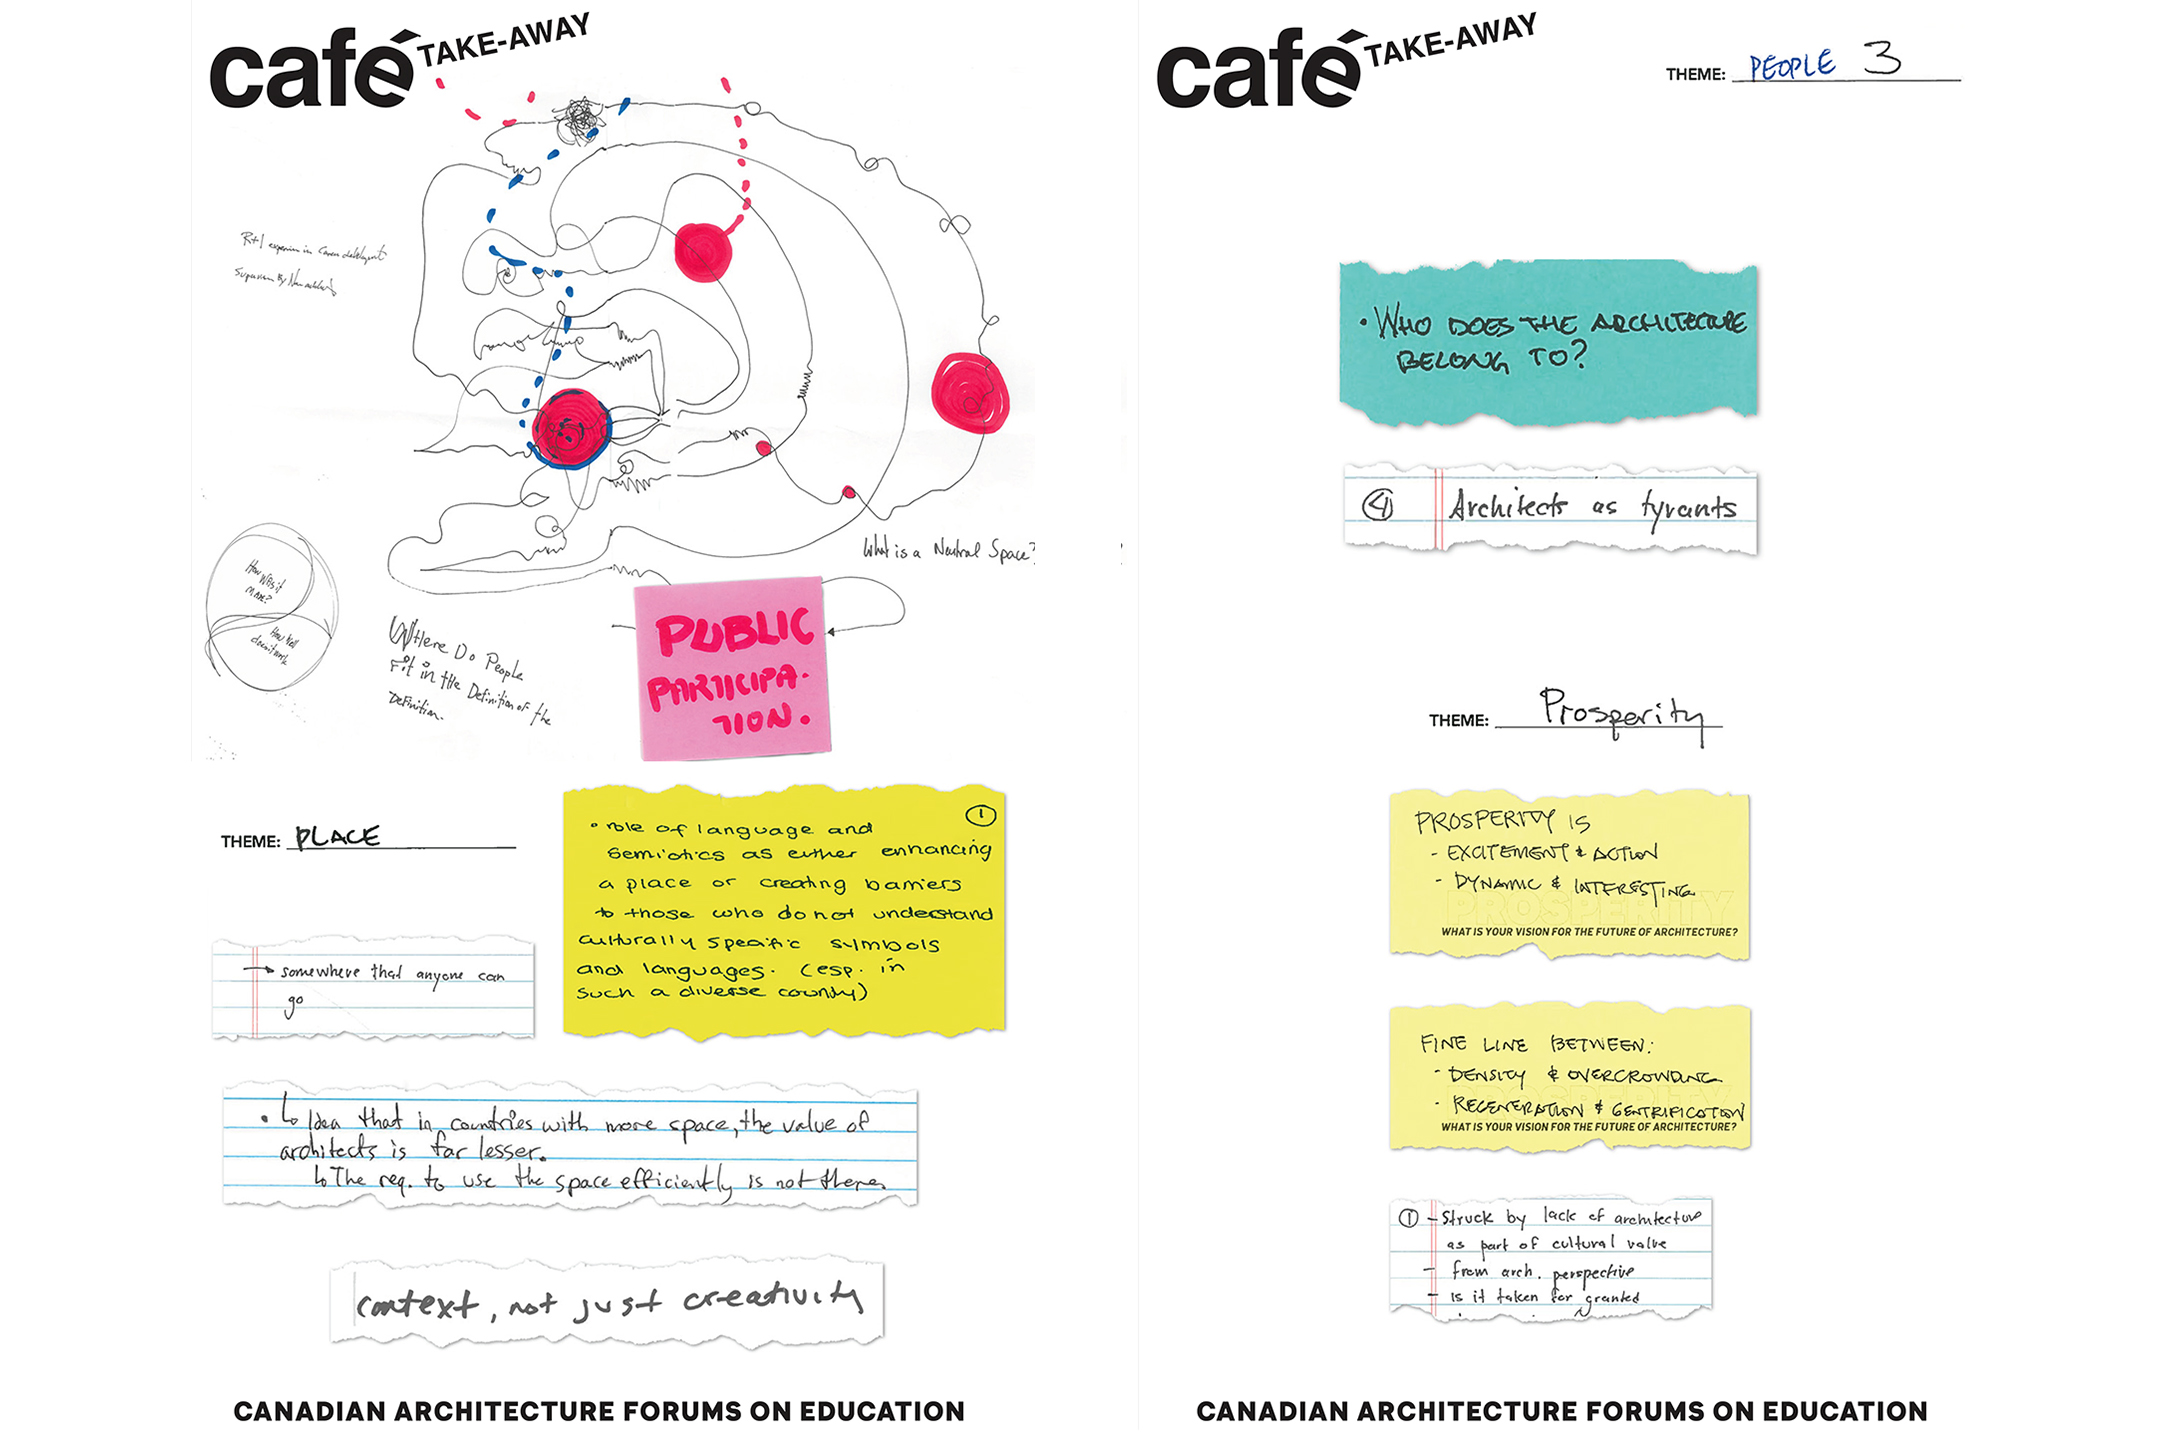 café TAKE-AWAY
What is a Neutral Space?
How Was it
made?
How Well
does it work
Where Do People
Fit in the Definition of the
Definition.
PUBLIC
PARTICIPA-
TION.
THEME: PLACE
→ somewhere that anyone can
go
1
• role of language and
semiotics as either enhancing
a place or creating barriers
to those who do not understand
culturally specific symbols
and languages. (esp. in
such a diverse country)
• ↳ Idea that in countries with more space, the value of
architects is far lesser.
↳ The req. to use the space efficiently is not there.
context, not just creativity
CANADIAN ARCHITECTURE FORUMS ON EDUCATION
café TAKE-AWAY
THEME: PEOPLE 3
• WHO DOES THE ARCHITECTURE
BELONG TO?
4 Architects as tyrants
THEME: Prosperity
PROSPERITY IS
- EXCITEMENT & ACTION
- DYNAMIC & INTERESTING
PROSPERITY
WHAT IS YOUR VISION FOR THE FUTURE OF ARCHITECTURE?
FINE LINE BETWEEN:
- DENSITY & OVERCROWDING
- REGENERATION & GENTRIFICATION
PROSPERITY
WHAT IS YOUR VISION FOR THE FUTURE OF ARCHITECTURE?
1 - Struck by lack of architecture
as part of cultural value
- from arch. perspective
- is it taken for granted
CANADIAN ARCHITECTURE FORUMS ON EDUCATION